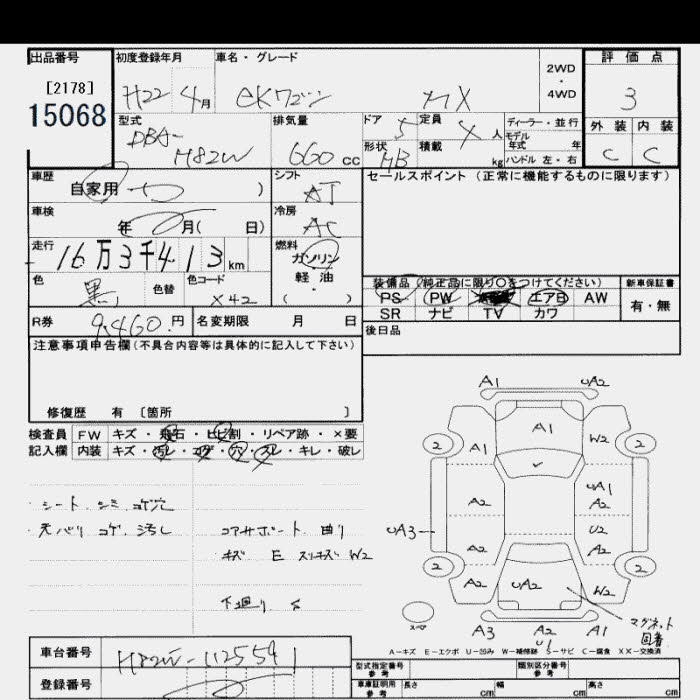 出品番号 初度登録年月 車名・グレード 2WD・4WD 評価点
[2178]
15068
H22 4月 eKワゴン MX 3
型式 排気量 ドア 定員 人 ディーラー・並行 外装 内装
DBA-H82W 660cc 5 4 モデル年式 年 C C
形状 HB 積載 kg ハンドル 左・右
車歴 シフト セールスポイント (正常に機能するものに限ります)
自家用 ) AT
車検 冷房
年 月( 日) AC
走行 燃料
16万3千413km ガソリン
軽油
( )
色 色替 色コード 装備品(純正品に限り○をつけてください) 新車保証書
黒 X42 PS PW エアB AW 有・無
SR ナビ TV カワ
R券 9,460円 名変期限 月 日 後日品
注意事項申告欄(不具合内容等は具体的に記入して下さい)
修復歴 有 〔箇所 〕
検査員 FW キズ・飛石・ヒビ割・リペア跡・×要
記入欄 内装 キズ・汚レ・コゲ・穴・スレ・キレ・破レ
シート シミ コゲ穴
天バリ コゲ 汚し コアサポート 曲り
キズ E スリキズ W2
下廻り S
A1 UA2
A1
2 A1 W2 2
A2 UA1
A2
UA3 U2
A2 A2
2 A2 UA2 W2 2
スペア マグネット
固着
A3 A2 A1
U1
A-キズ E-エクボ U-凹み W-補修跡 S-サビ C-腐食 XX-交換済
車台番号 H82W-1125591
登録番号
型式指定番号 参考 類別区分番号 参考
車庫証明用 参考 長さ cm 幅 cm 高さ cm